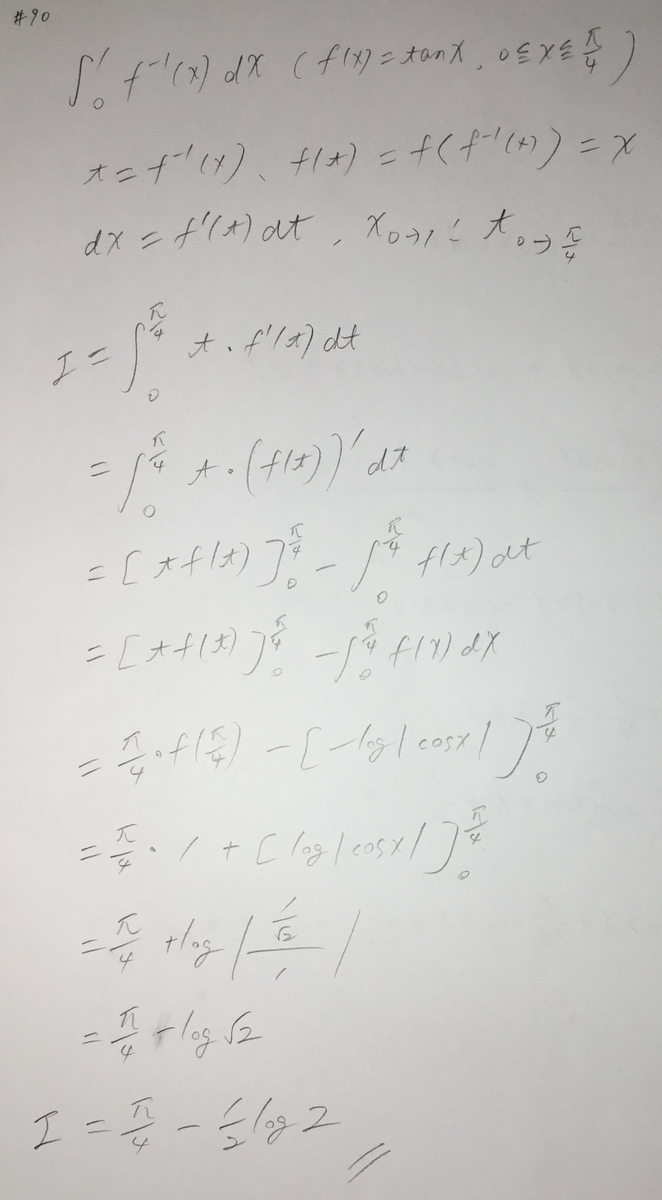 #90
∫₀¹ f⁻¹(x) dx ( f(x) = tanx, 0 ≦ x ≦ π/4 )
t = f⁻¹(x)、 f(t) = f(f⁻¹(x)) = x
dx = f'(t) dt , x 0→1 : t 0→π/4
I = ∫₀^{π/4} t・f'(t) dt
= ∫₀^{π/4} t・(f(t))' dt
= [ t f(t) ]₀^{π/4} − ∫₀^{π/4} f(t) dt
= [ t f(t) ]₀^{π/4} − ∫₀^{π/4} f(x) dx
= π/4・f(π/4) − [ −log|cosx| ]₀^{π/4}
= π/4・1 + [ log|cosx| ]₀^{π/4}
= π/4 + log | (1/√2)/1 |
= π/4 − log√2
I = π/4 − 1/2 log 2 //